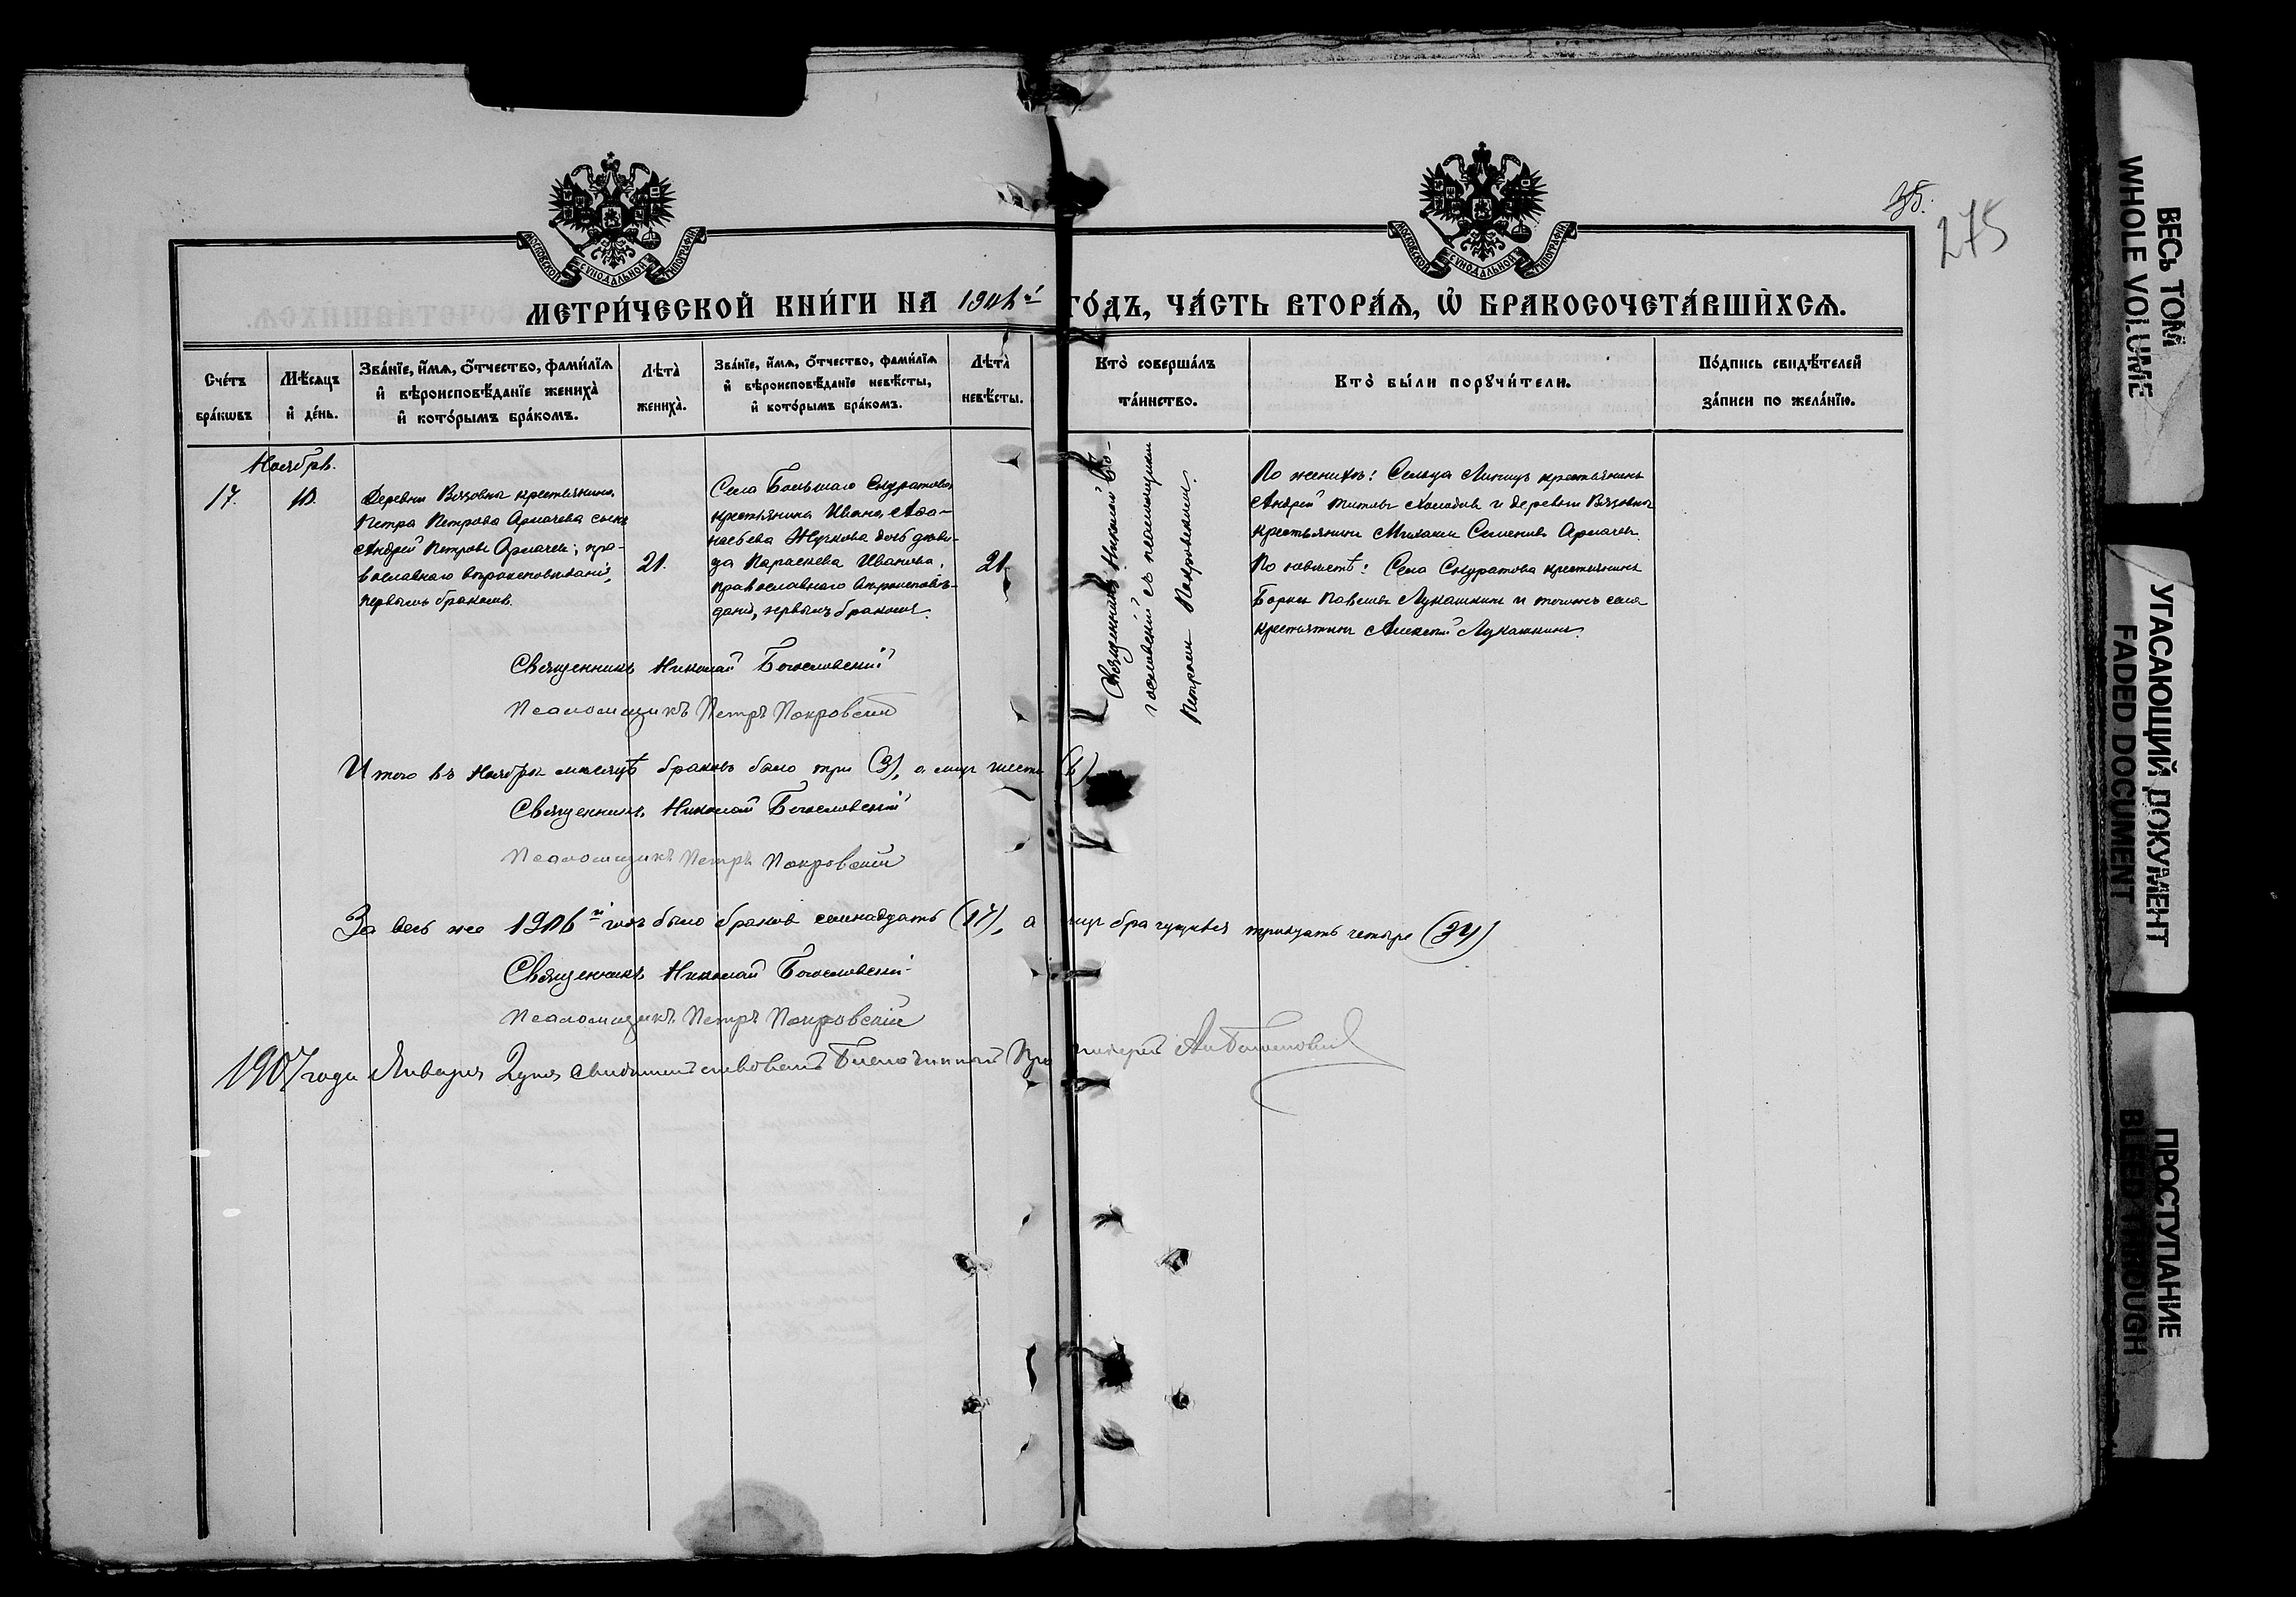 275
МОСКОВСКОЙ СѴНОДАЛЬНОЙ ТИПОГРАФІИ
МОСКОВСКОЙ СѴНОДАЛЬНОЙ ТИПОГРАФІИ
МЕТРИ́ЧЕСКОЙ КНИ́ГИ НА 1906й ГО́ДЪ, ЧА́СТЬ ВТОРА́Я, Ѡ БРАКОСОЧЕТА́ВШИХСЯ.
Сче́тъ бра́кѡвъ
Мѣ́сяцъ и́ де́нь.
Зва́нїе, и́мя, ѻ́тчество, фами́лїя и́ вѣроисповѣ́данїе жениха̀ и́ кото́рымъ бра́комъ.
Лѣта̀ жениха̀.
Зва́нїе, и́мя, ѻ́тчество, фами́лїя и́ вѣроисповѣ́данїе невѣ́сты, и́ кото́рымъ бра́комъ.
Лѣта̀ невѣ́сты.
Кто̀ соверша́лъ та́инство.
Кто̀ бы́ли порꙋчи́тели.
По́дпись свидѣ́телей за́писи по жела́нїю.
Ноябрь.
17.
10.
Деревни Вязовна крестьянина
Петра Петрова Армачева сынъ
Андрей Петровъ Армачевъ, пра-
вославнаго вѣроисповѣданія,
первымъ бракомъ.
21.
Села Большаго Скуратова
крестьянина Ивана Аѳа-
насьева Жучкова дочь дѣви-
ца Параскева Иванова,
православнаго вѣроисповѣ-
данія, первымъ бракомъ.
21.
Священникъ Николай Бо-
гословскій съ псаломщикомъ
Петромъ Покровскимъ.
По женихѣ: Сельца Липицъ крестьянинъ
Андрей Титовъ Холодовъ и деревни Вязовна
крестьянинъ Михаилъ Семеновъ Армачевъ.
По невѣстѣ: Села Скуратова крестьянинъ
Борисъ Павловъ Лукашкинъ и тогожъ села
крестьянинъ Алексѣй Лукашкинъ.
Священникъ Николай Богословскій
Псаломщикъ Петръ Покровскій
Итого въ Ноябрѣ мѣсяцѣ браковъ было три (3), а лицъ шесть (6)
Священникъ Николай Богословскій
Псаломщикъ Петръ Покровскій
За весь же 1906й годъ было браковъ семнадцать (17), а лицъ брачущихся тридцать четыре (34)
Священникъ Николай Богословскій
Псаломщикъ Петръ Покровскій
1907 года Января 2 дня свидѣтельствовалъ Благочинный Протоіерей
ВЕСЬ ТОМ
WHOLE VOLUME
УГАСАЮЩИЙ ДОКУМЕНТ
FADED DOCUMENT
ПРОСТУПАНИЕ
BLEED THROUGH